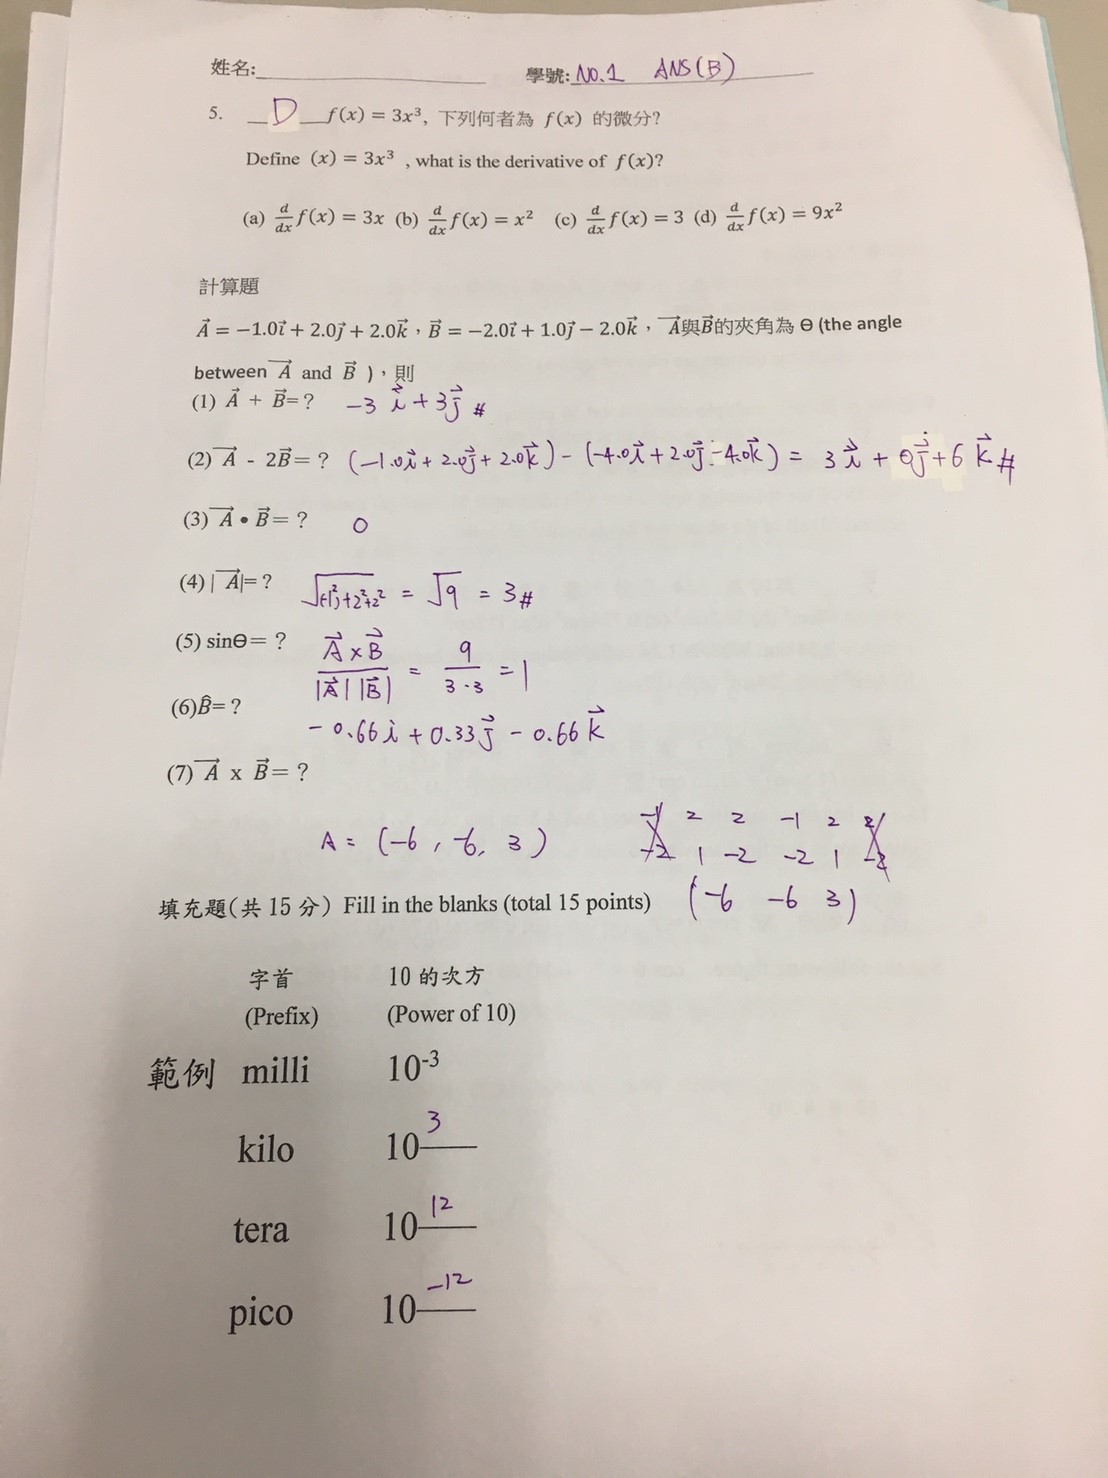 姓名:____________ 學號: NO.1 ANS(B)
5. __D__f(x) = 3x³, 下列何者為 f(x) 的微分?
Define (x) = 3x³ , what is the derivative of f(x)?
(a) d/dx f(x) = 3x (b) d/dx f(x) = x² (c) d/dx f(x) = 3 (d) d/dx f(x) = 9x²
計算題
A⃗ = −1.0i⃗ + 2.0j⃗ + 2.0k⃗，B⃗ = −2.0i⃗ + 1.0j⃗ − 2.0k⃗，A⃗與B⃗的夾角為 Θ (the angle
between A⃗ and B⃗ )，則
(1) A⃗ + B⃗= ? -3 i⃗ + 3j⃗ #
(2) A⃗ - 2B⃗= ? (-1.0i⃗ + 2.0j⃗ + 2.0k⃗) - (-4.0i⃗ + 2.0j⃗ - 4.0k⃗) = 3i⃗ + 0j⃗ + 6k⃗ #
(3) A⃗ • B⃗= ? 0
(4) | A⃗|= ? √((-1)²+2²+2²) = √9 = 3#
(5) sinΘ= ? A⃗ x B⃗ / |A⃗| |B⃗| = 9 / 3·3 = 1
(6)B̂= ?
-0.66 i + 0.33 j⃗ - 0.66 k⃗
(7) A⃗ x B⃗= ?
-1 2 2 -1 2 2
A = (-6, -6, 3)
-2 1 -2 -2 1 -2
(-6 -6 3)
填充題(共 15 分) Fill in the blanks (total 15 points)
字首 10 的次方
(Prefix) (Power of 10)
範例 milli 10⁻³
kilo 10 3
tera 10 12
pico 10 -12